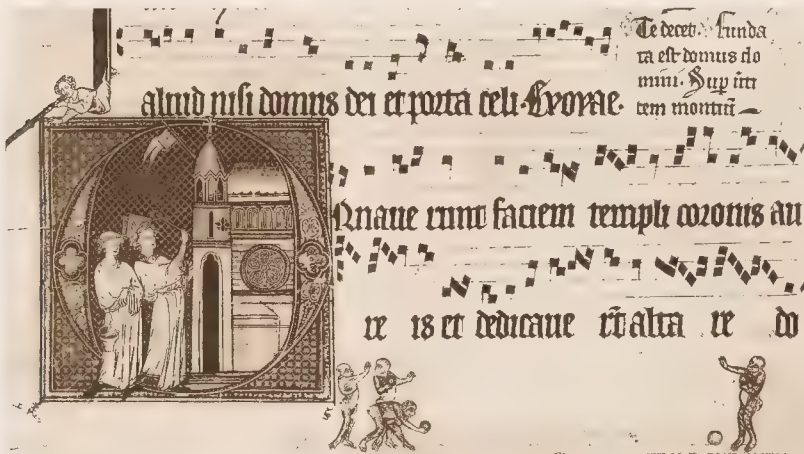 Te decet. Funda
ta est domus do
mini. Sup
tem montiū
aliud nisi domus dei et porta celi. Evovae.
Rnave runt faciem templi coronis au
re is et dedicave rūt alta re do